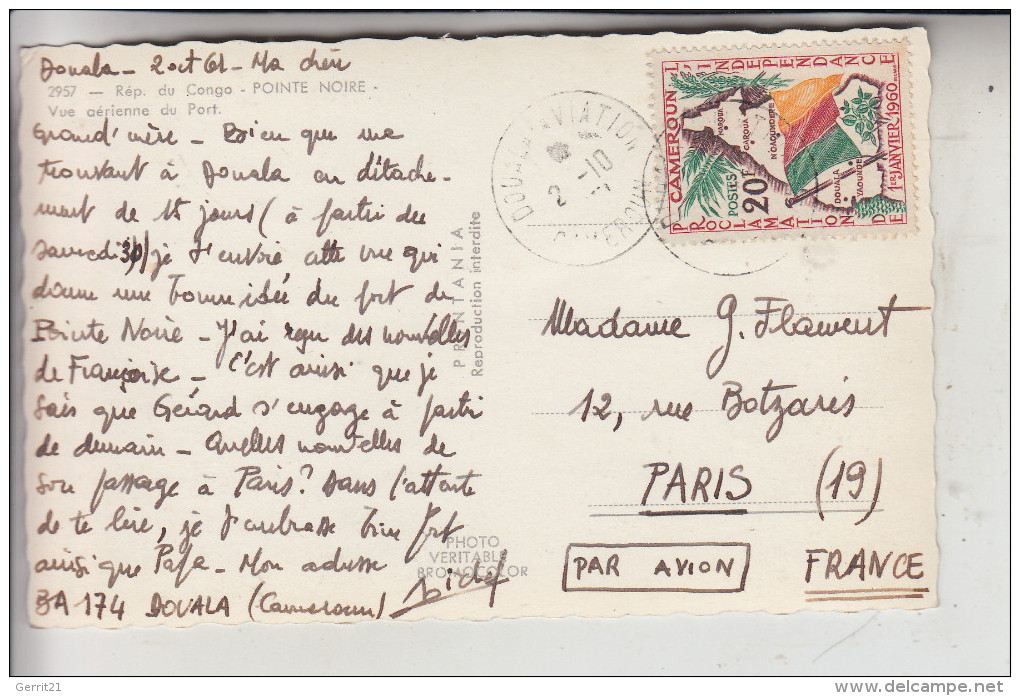 Douala - 2 oct 61 - Ma chère
2957 — Rép. du Congo - POINTE NOIRE -
Vue aérienne du Port.
Grand'mère - Bien que me
trouvant à Douala en détache-
ment de 15 jours (à partir du
samedi 30) je t'envoie cette vue qui
donne une bonne idée du port de
Pointe Noire - J'ai reçu des nouvelles
de Françoise - C'est ainsi que je
sais que Gérard s'engage à partir
de demain - Quelles nouvelles de
son passage à Paris ? Dans l'attente
de te lire, je t'embrasse bien fort
ainsi que Papa - Mon adresse
BA 174 DOUALA (Cameroun)
PRINTANIA
Reproduction interdite
PHOTO
VERITABLE
BROMOCOLOR
DOUALA AVIATION
2 -10
CAMEROUN
CAMEROUN
L'INDEPENDANCE
PROCLAMATION DE
1ER JANVIER 1960
POSTES
20F
MAROUA
GAROUA
N'GAOUNDERE
DOUALA
YAOUNDE
Madame G. Flament
12, rue Botzaris
PARIS (19)
PAR AVION
FRANCE
Gerrit21
delcampe.net